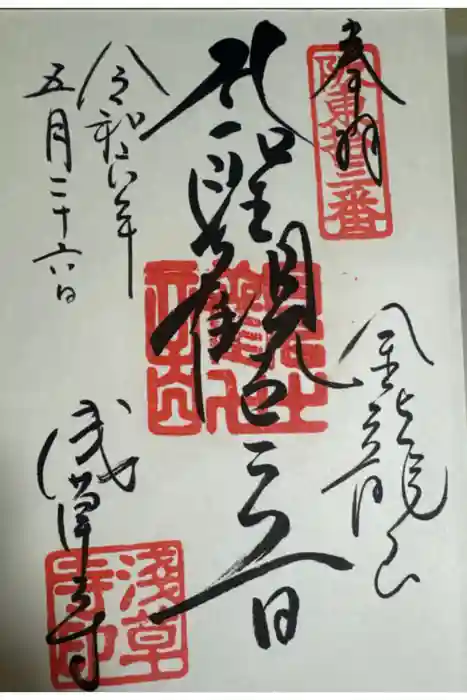 奉拝
坂東拾三番
金龍山
聖観世音
浅草寺
淺草寺印
令和六年
五月二十六日